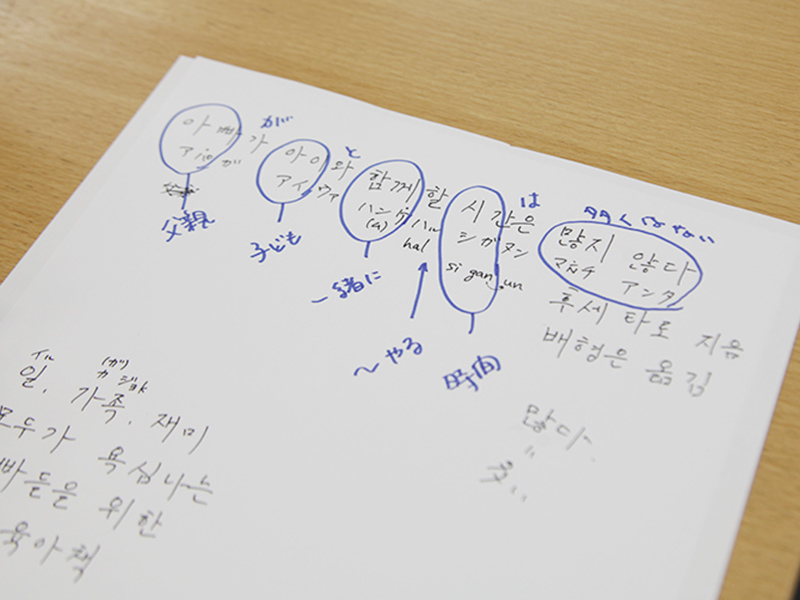 が と は 多くない
아빠가 아이와 함께할 시간은 많지 않다
アッパガ アイワァ ハンケハル シガヌン マンチ アンタ
(a) hal si gan un
父親 子ども 〜緒に 〜やる 時間
후세 타로 지음
배형은 옮김
많다
=
多い
イル (ガ)
カ ジョk
일, 가족, 재미
모두가 욕심나는
빠들을 위한
육아책